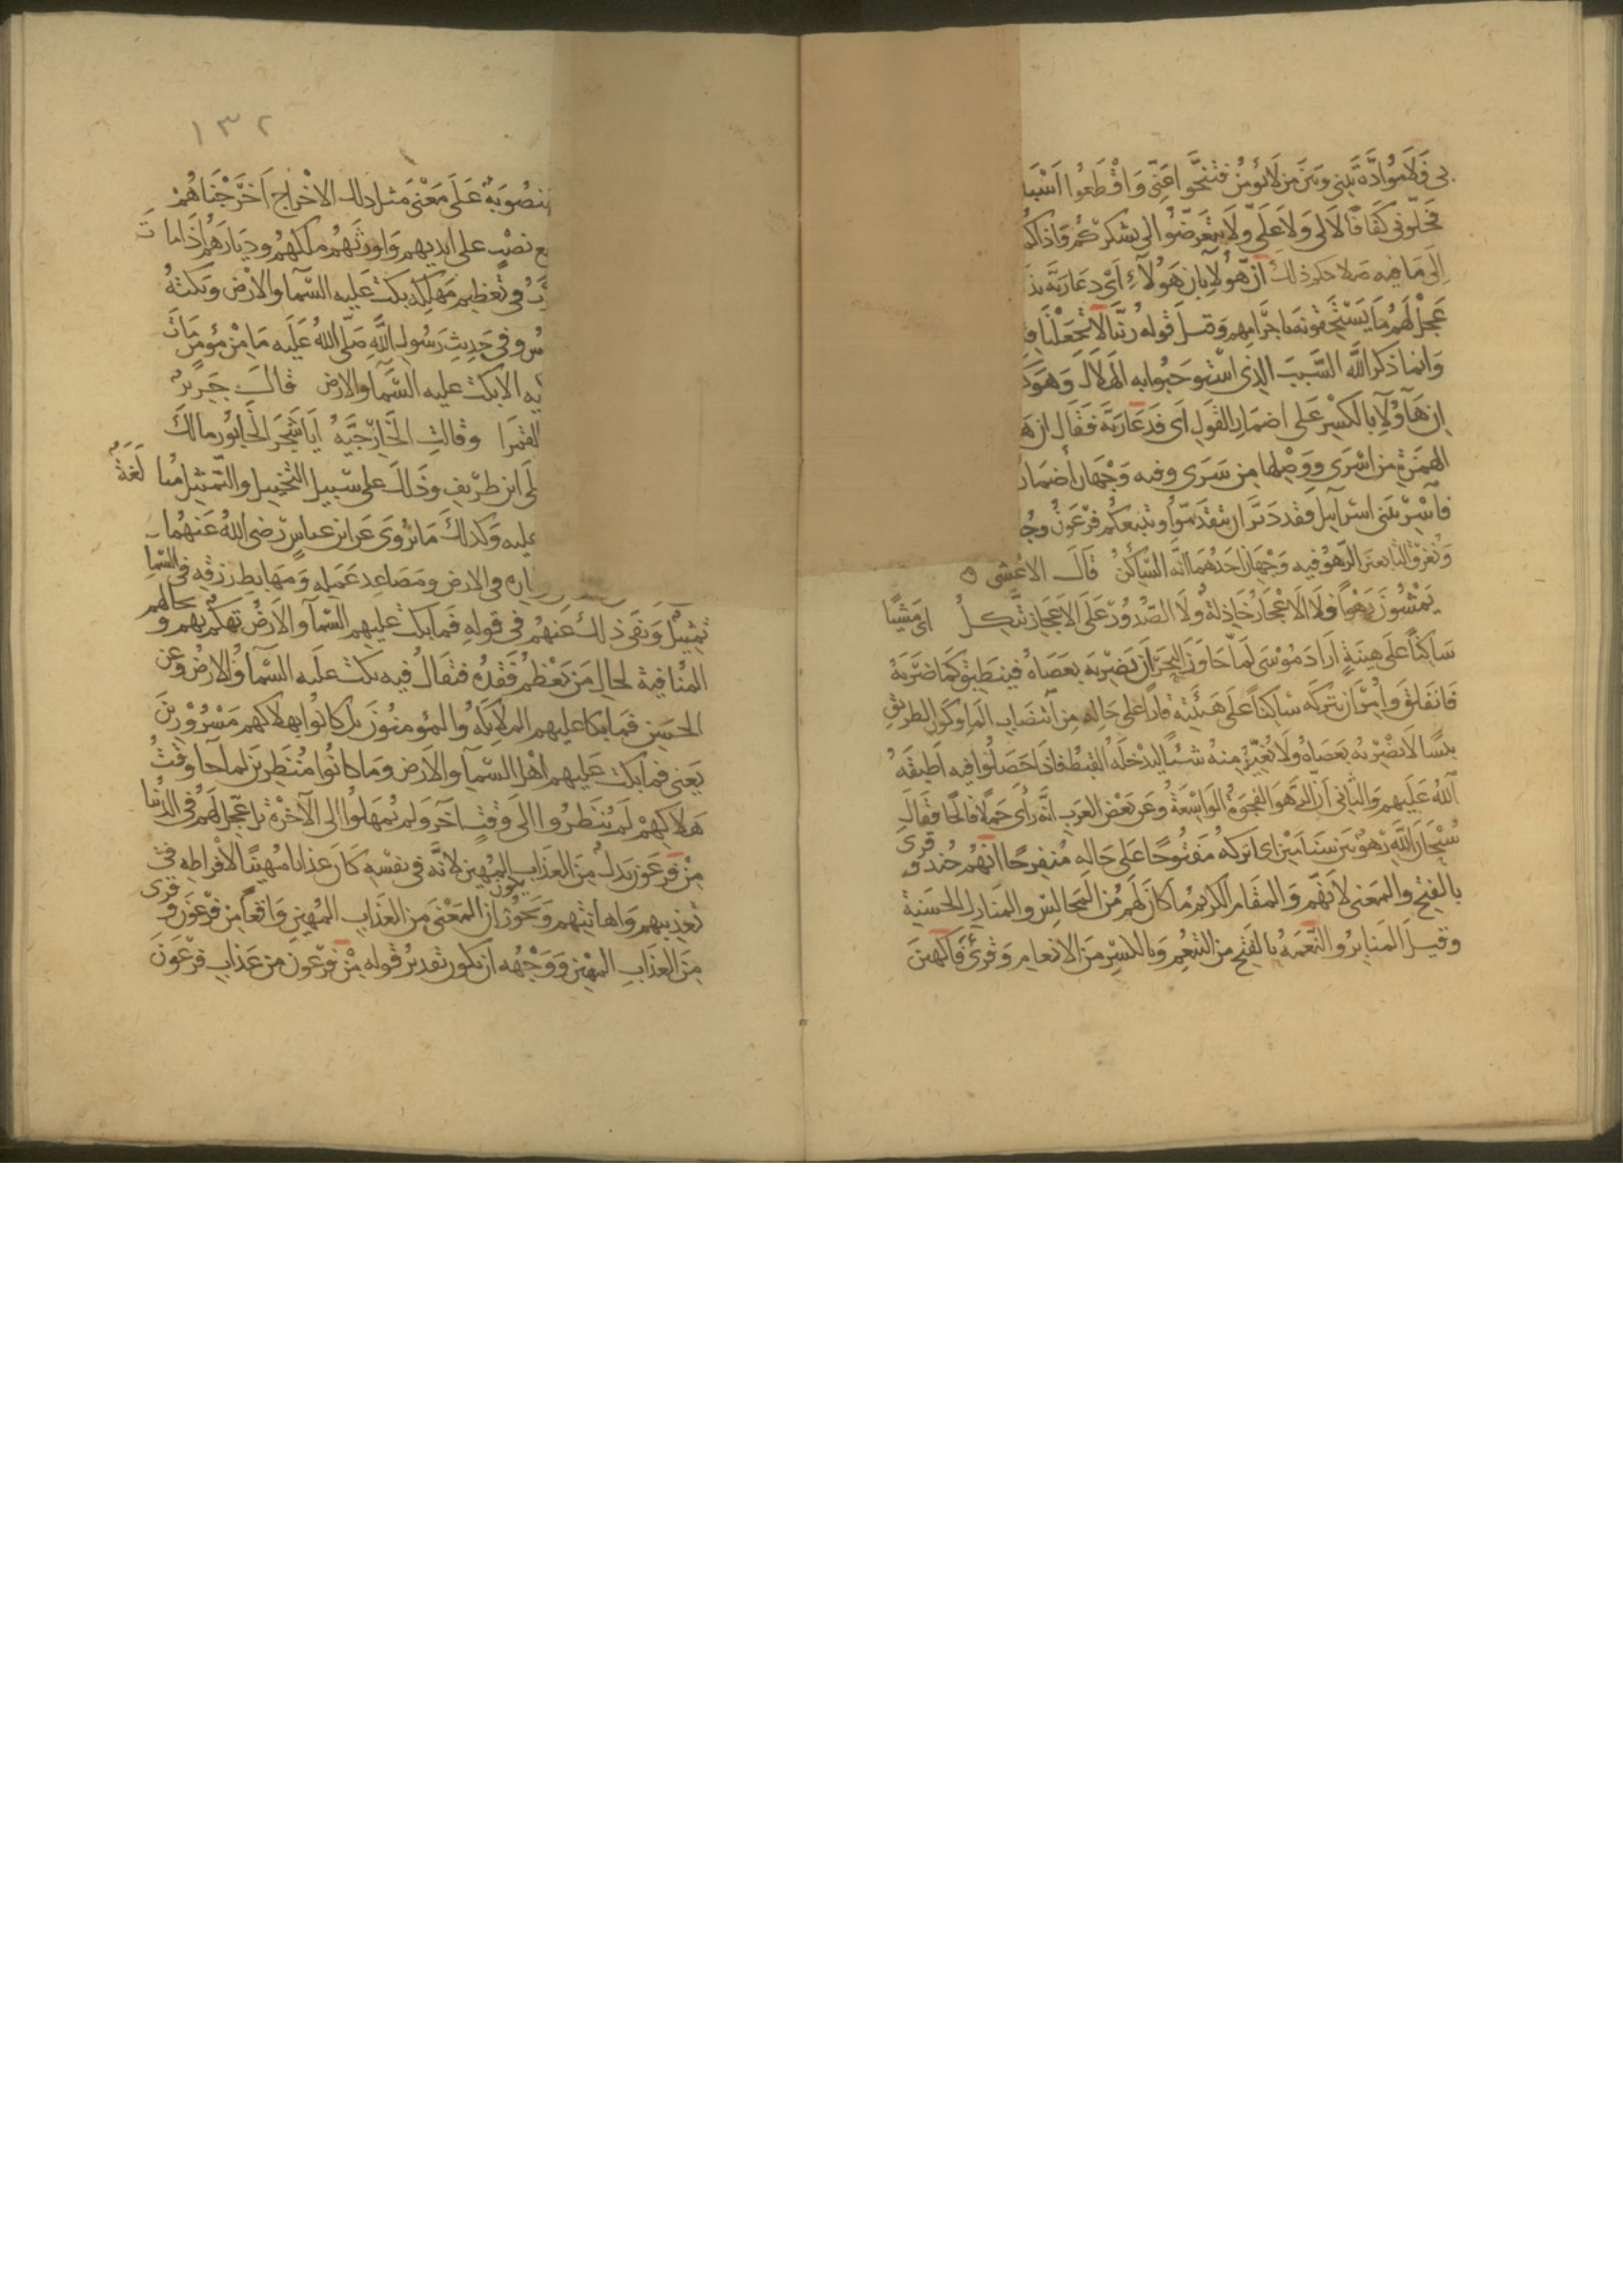 بى فَلا مُوادَّة بينى وبَيْنَ مَن لا يُؤمن فتنحَّوا عنّى وَاقْطَعُوا اسْبَا
فخلّونى كَفَافًا لا لى وَلا عَلَىّ ولا تتعرّضوا الى بشركم وَاذاكم
ذلك انّ هؤلاء بان هَؤلآء اى دعَا ربَّه بذ
عَجّل لَهُم مَا يَستحقونه باجرامهم وقيلَ قوله ربّنا لا تجْعَلْنَا
وَانما ذكر الله السَّببَ الذى اسْتوجبوا به الهلاك وَهو
ان هَآؤلآء بالكسْر على اضمار القول اى فدعَا ربَّه فقال ان
الهمزة من اسْرى ووَصْلها من سَرى وفيه وَجْهَان اضمار
فآسْر ببَنى اسرآئيل فقد دَبّر ان تتقدّموا ويتبعكم فرعونُ وجُ
الرَّهْوُ فيه وَجْهَان احَدُهمَا انّه السَّاكنُ قالَ الاعشى ه
يَمْشُونَ رَهْواً فلا الاعْجَازُ خَاذِلةٌ ولا الصُدُورُ عَلى الاعجاز تتّكلُ اى مَشْيًا
سَاكنًا على هِينَةٍ ارادَ مُوسَى لَمّا جَاوَزَ البحرَ ان يَضْربَه بعَصَاهُ فينطبق كما ضَرَبَهُ
فَانفلقَ وامُرَ ان يتركه سَاكنًا على هَيئته قارًّا على حَالِه مِن انتصَاب المآء وكون الطريق
يبسًا لا يضْربه بعَصَاهُ ولا يُغيّر منهُ شيئًا ليدْخلَه القِبط فاذا حَصَلُوا فيه اطبقَه
اللهُ عَلَيهم والثَّانى انّ الرَّهوَ الفجوَةُ الوَاسعَةُ وعَن بَعْض العرب انَّه رأى جملا فالجًا فقالَ
سُبْحَانَ الله رَهْوٌ بَين سنَامَيْن اى اتركهُ مَفتُوحًا على حَالِه مُنفرجًا انّهُم جُند وقرى
بالفتح والمعنى لانّهم وَالمقَام الكريمُ ما كانَ لَهُم مُن المجَالس والمنازل الحسَنة
وقيلَ المنابرُ والنَّعمَهُ بالفتح من التنعُّم وبالكسْر مَن الانعام وَقرئ فَاكهينَ
١٣٢
مَنصُوبَةٌ عَلَى مَعْنَى مثل ذلك الاخْراج اخَرَجْنَاهُمْ
على ايديهم وَاورثهُم ملكهُم وديَارَهُم اذا مات
فى تعْظيم مَهْلِكه بكتْ عَليه السَّمآ والارْض وبَكتْهُ
وفى حَدِيثِ رَسُولِ اللهِ صَلّى اللهُ عَلَيه مَا مِنْ مُؤمنٍ مَات
الا بكت عليه السَّمآ والارض قالَ جَريرٌ
القَمَرا وقالت الخَارِجيَّهُ ايَا شجَر الخَابُور مالكَ
ابن طريفٍ وذَلكَ على سَبيل التخييل والتّمثيل مُبالَغةً
عليه وَكذلكَ مَا يُروَى عَن ابن عبَّاسٍ رَضى اللهُ عَنهُما
فى الارض ومَصَاعِد عَمَلِه وَمَهَابط رزقه فى السّما
تمثيلٌ وَنفَى ذلك عَنهُم فى قولهِ فَما بكت عليهم السّمآ والارضُ تهكّم بهم وبحالهم
المُنافية لحال مَن يَعْظُم فَقْدُهُ فيقالُ فيه بكت علَيه السَّمآ والارضُ وعن
الحسَن فما بكا عليهم الملائِكه والمُؤمنُونَ بل كانُوا بهلاكهم مَسْرُورينَ
يَعنى فما بكت عليهم اهْلُ السّمآ والارَض ومَا كانُوا مُنْظَرين لما جآ وقتُ
هَلاكهمْ لَم يُنظَروا الى وَقتٍ آخَر ولم يُمهَلوُا الى الآخرَة بل عُجّل لَهُم فى الدُّنيا
مِنْ فرعَون بَدلٌ مِنَ العذَاب المُهِين لانّه فى نفسِه كانَ عذابًا مُهينًا لافراطه فى
تعذيبهم وَاهانتهم وَيجوزُ ان يكون المعْنى من العذَاب المُهين وَاقعًا مِن فِرْعَونَ وقرى
مِنَ العذَابِ المهِين وَوَجْهُه ان يكون تقديرُ قوله مِنْ فِرْعون من عَذابِ فِرْعَونَ